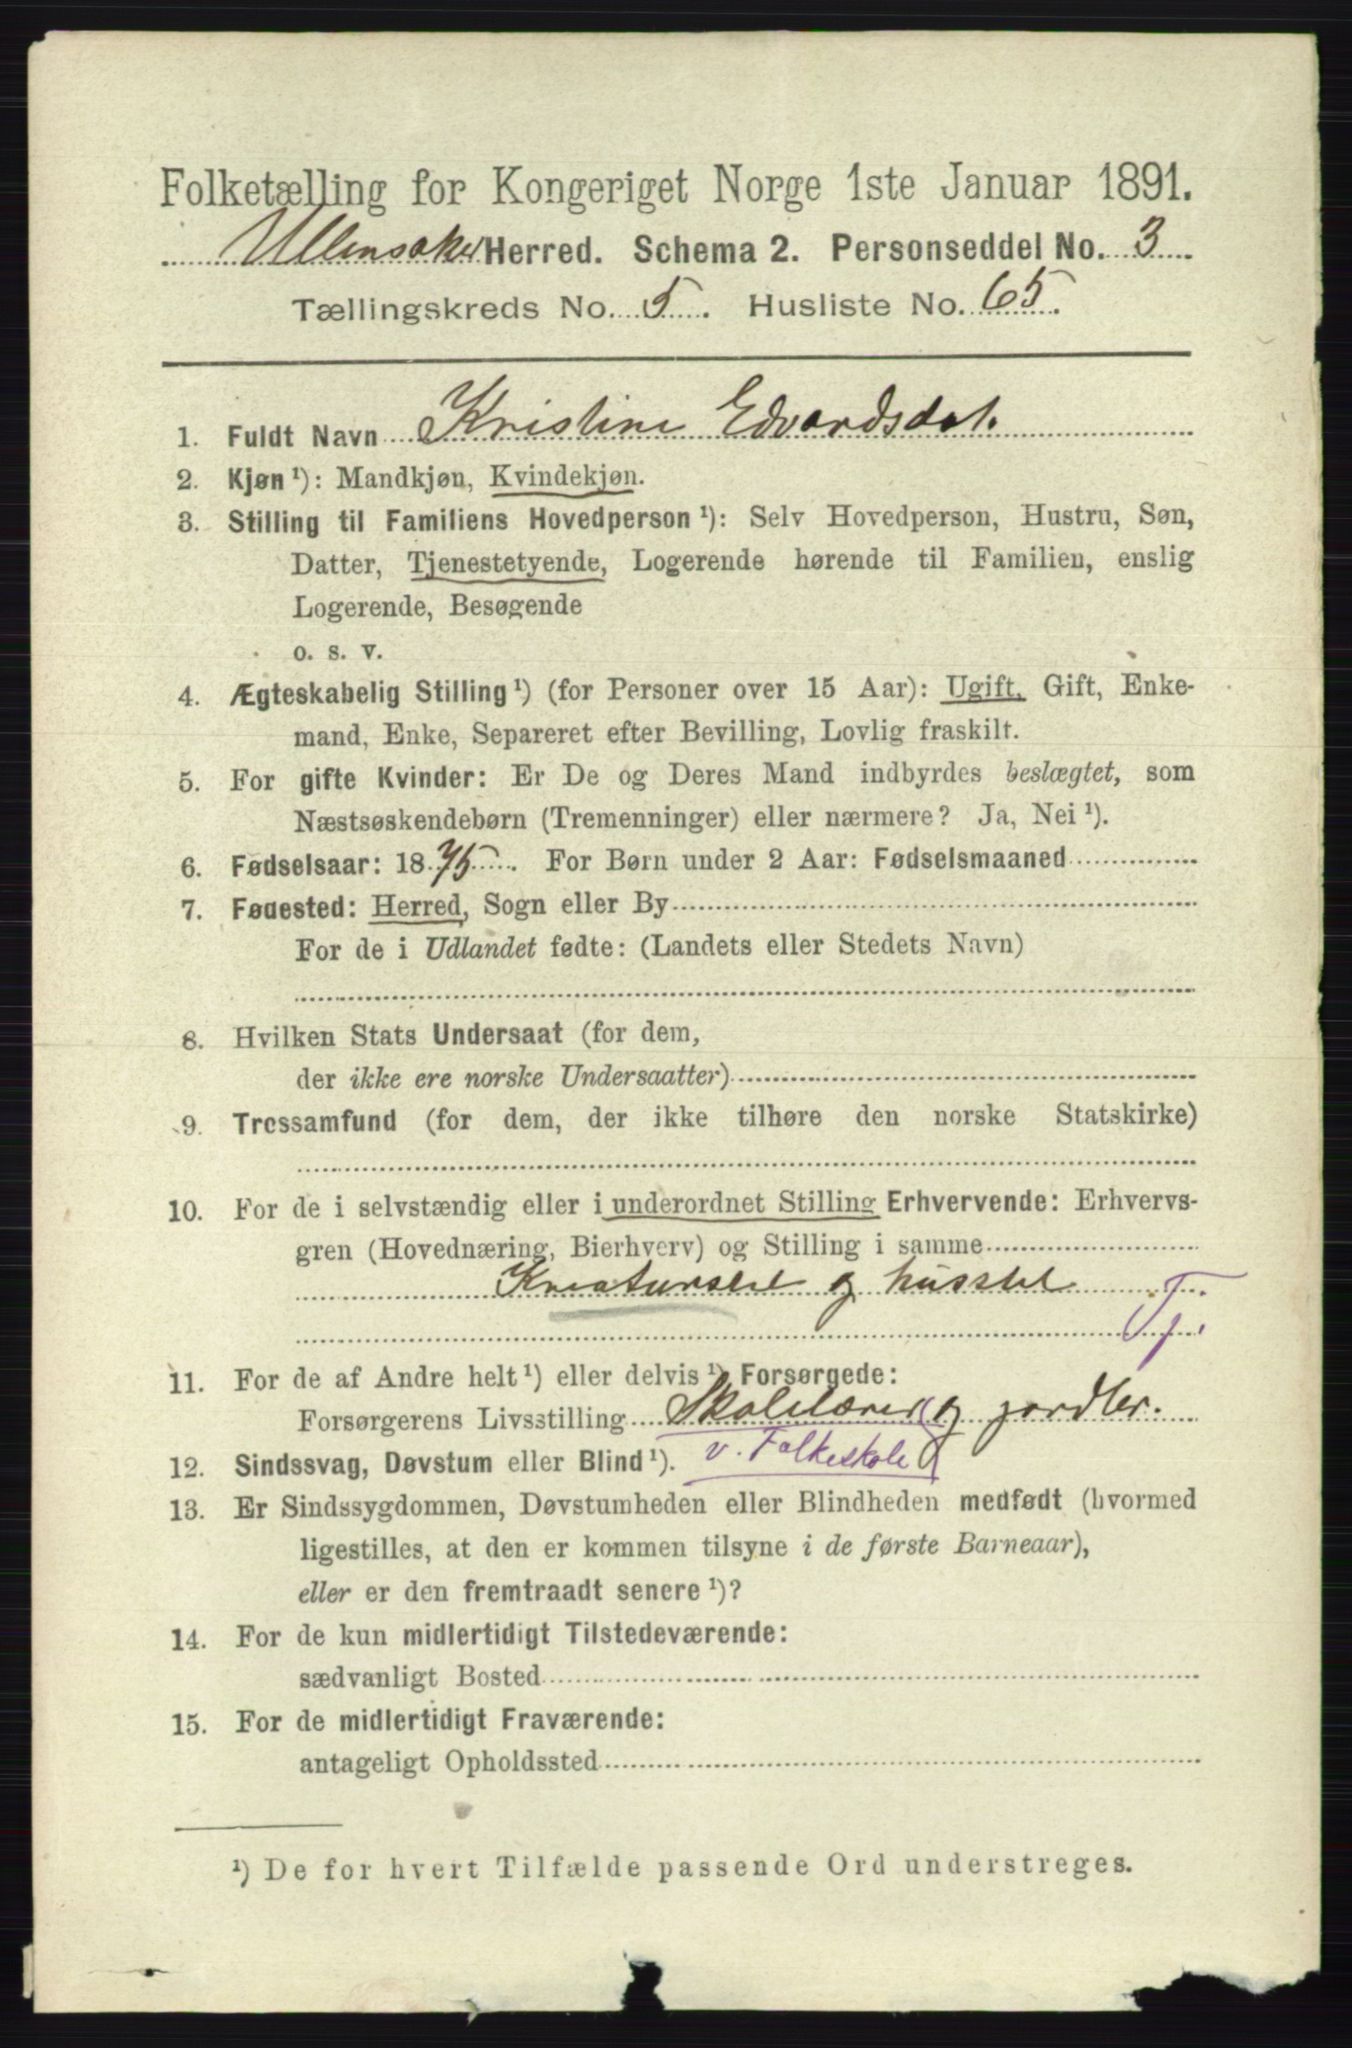 Folketælling for Kongeriget Norge 1ste Januar 1891.
Ullensaker Herred. Schema 2. Personseddel No. 3
Tællingskreds No. 5. Husliste No. 65.
1. Fuldt Navn Kristine Edvardsdat.
2. Kjøn ¹): Mandkjøn, Kvindekjøn.
3. Stilling til Familiens Hovedperson ¹): Selv Hovedperson, Hustru, Søn,
Datter, Tjenestetyende, Logerende hørende til Familien, enslig
Logerende, Besøgende
o. s. v.
4. Ægteskabelig Stilling ¹) (for Personer over 15 Aar): Ugift, Gift, Enke-
mand, Enke, Separeret efter Bevilling, Lovlig fraskilt.
5. For gifte Kvinder: Er De og Deres Mand indbyrdes beslægtet, som
Næstsøskendebørn (Tremenninger) eller nærmere? Ja, Nei ¹).
6. Fødselsaar: 1875. For Børn under 2 Aar: Fødselsmaaned
7. Fødested: Herred, Sogn eller By
For de i Udlandet fødte: (Landets eller Stedets Navn)
8. Hvilken Stats Undersaat (for dem,
der ikke ere norske Undersaatter)
9. Trossamfund (for dem, der ikke tilhøre den norske Statskirke)
10. For de i selvstændig eller i underordnet Stilling Erhvervende: Erhvervs-
gren (Hovednæring, Bierhverv) og Stilling i samme
Kreaturstel og husstel
Tj.
11. For de af Andre helt ¹) eller delvis ¹) Forsørgede:
Forsørgerens Livsstilling Skolelærer og jordbr.
v. Folkeskole
12. Sindssvag, Døvstum eller Blind ¹).
13. Er Sindssygdommen, Døvstumheden eller Blindheden medfødt (hvormed
ligestilles, at den er kommen tilsyne i de første Barneaar),
eller er den fremtraadt senere ¹)?
14. For de kun midlertidigt Tilstedeværende:
sædvanligt Bosted
15. For de midlertidigt Fraværende:
antageligt Opholdssted
¹) De for hvert Tilfælde passende Ord understreges.